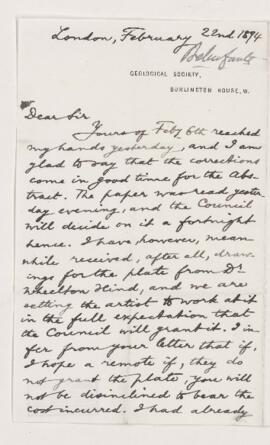 London, February 22nd 1894
GEOLOGICAL SOCIETY,
BURLINGTON HOUSE, W.
Dear Sir
Yours of Feby 6th reached
my hands yesterday, and I am
glad to say that the corrections
come in good time for the Abs-
tract. The paper was read yester-
day evening, and the Council
will decide on it a fortnight
hence. I have, however, mean
while received, after all, draw-
ings for the plate from Dr
Wheelton Hind, and we are
setting the artist to work at it
in the full expectation that
the Council will grant it. I in-
fer from your letter that if,
I hope a remote if, they do
not grant the plate, you will
not be disinclined to bear the
cost incurred. I had already